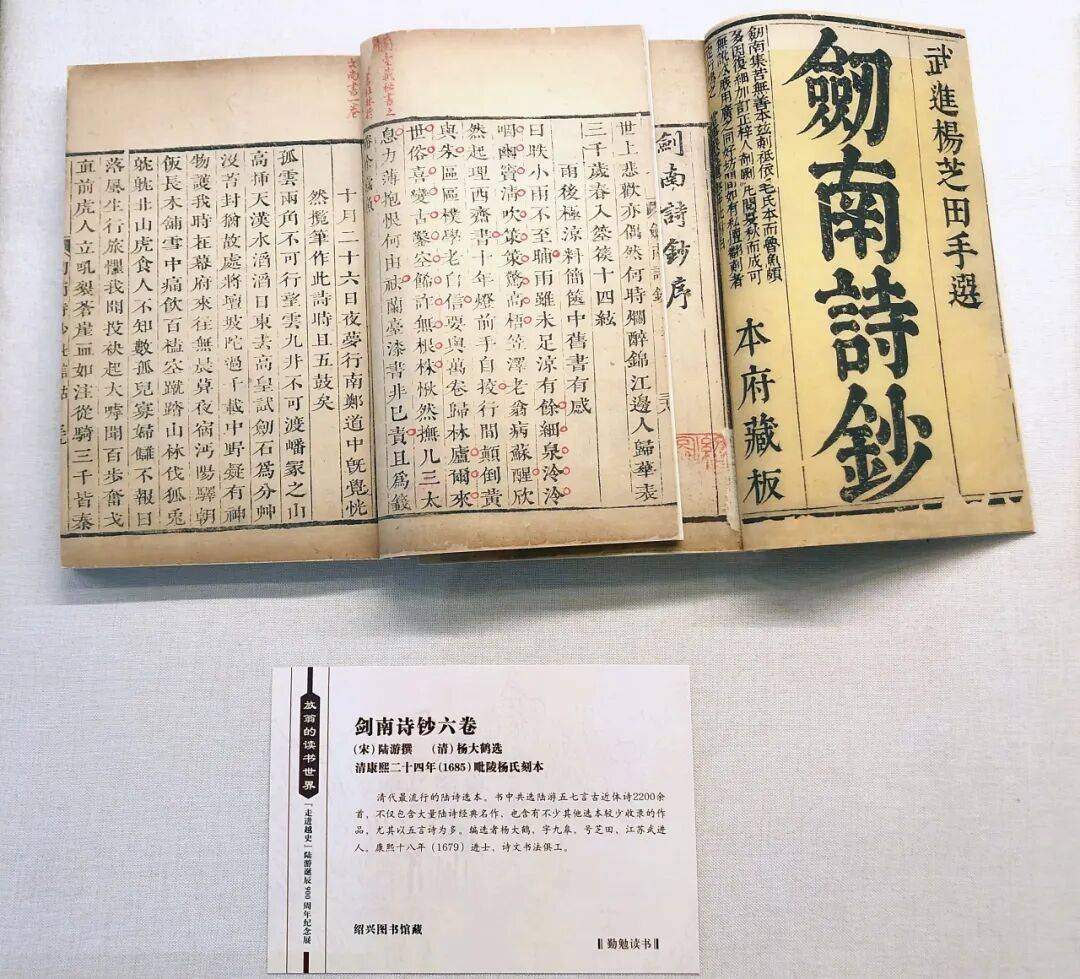 武進楊芝田手選
劒南詩鈔
本府藏板
劒南集苦無善本茲刻祗依毛氏本而魯魚頗
多因復細加訂正梓人剞劂凡閱夏秋而成可
劍南詩鈔序
世上悲歡亦偶然何時爛醉錦江邊人歸華表
三千歲春入箜篌十四絃
雨後極涼料簡篋中舊書有感
日昳小雨不至晡雨雖未足涼有餘細泉泠泠
咽幽竇清吹策策驚高梧笠澤老翁病蘇醒欣
然起理西齋書十年燈前手自挍行間顛倒黃
與朱區區樸學老自信要與萬卷歸林廬爾來
世俗喜變古鑿空飾詐無根株愀然撫几三太
息力薄抱恨何由袪蘭臺漆書非已責且爲籤
十月二十六日夜夢行南鄭道中旣覺恍
然攬筆作此詩時且五鼓矣
孤雲兩角不可行望雲九井不可渡嶓冢之山
高揷天漢水滔滔日東去高皇試劒石爲分艸
没苔封猶故處將壇坡陀過千載中野疑有神
物護我時在幕府來徃無晨莫夜宿沔陽驛朝
飯長木舖雪中痛飲百榼空蹴踏山林伐狐兎
眈眈北山虎食人不知數孤兒寡婦讎不報日
落風生行旅懼我聞投袂起大嘑聞百步奮戈
直前虎人立吼裂蒼崖血如注從騎三千皆秦
放翁的读书世界
「走进越史」陆游诞辰900周年纪念展
剑南诗钞六卷
(宋)陆游撰 (清)杨大鹤选
清康熙二十四年(1685)毗陵杨氏刻本
清代最流行的陆诗选本。书中共选陆游五七言古近体诗2200余
首,不仅包含大量陆诗经典名作,也含有不少其他选本较少收录的作
品,尤其以五言诗为多。编选者杨大鹤,字九皋,号芝田,江苏武进
人。康熙十八年(1679)进士,诗文书法俱工。
绍兴图书馆藏
勤勉读书